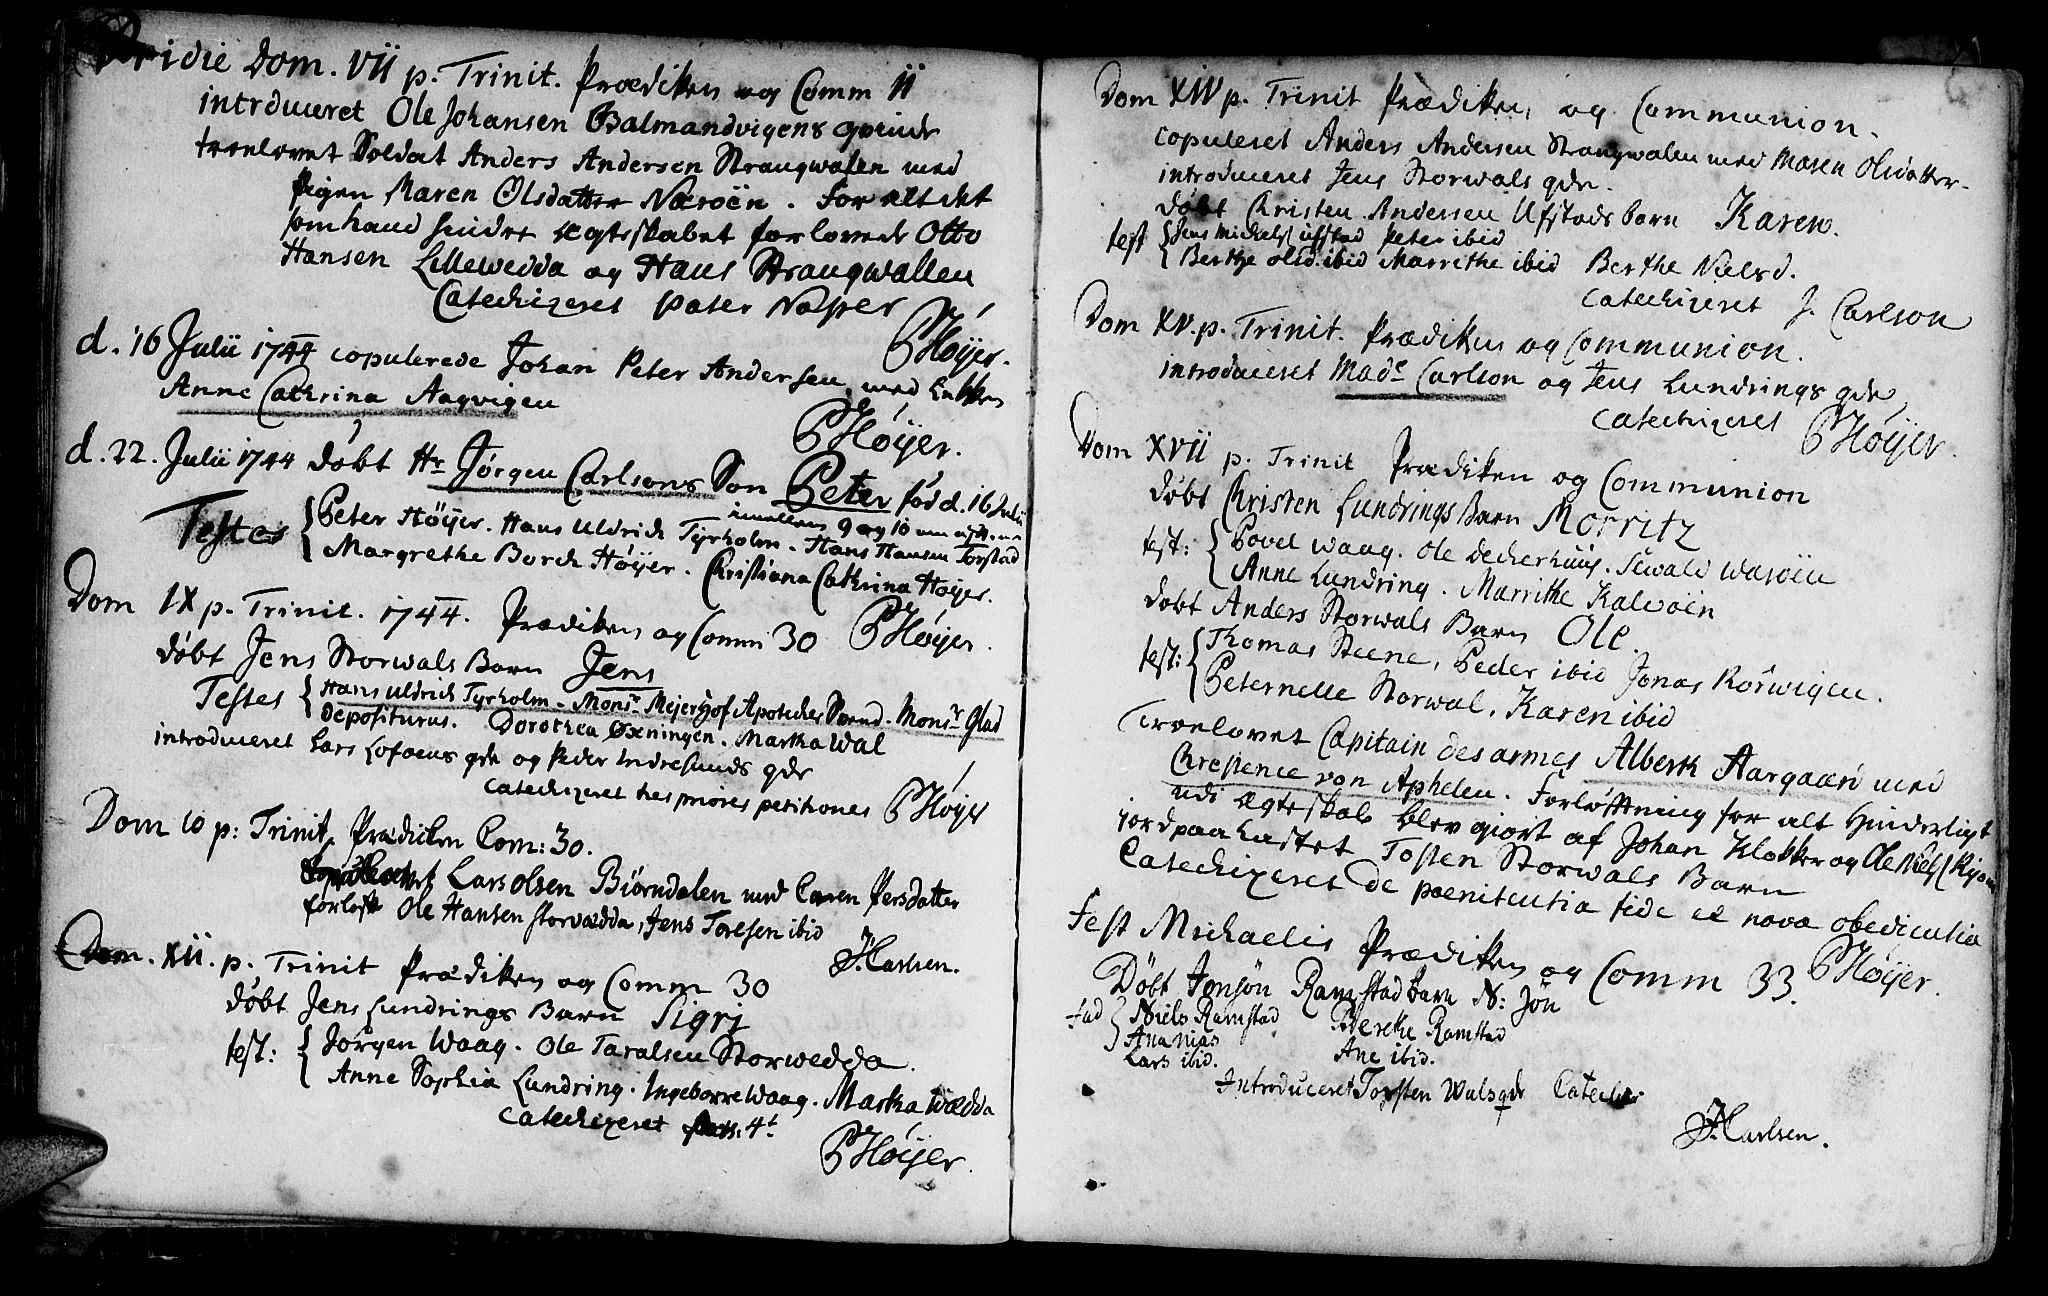 Pridie Dom. VII p. Trinit. Prædiken og Comm 11
introduceret Ole Johansen Balmandvigens qvinde
troelovet Soldat Anders Andersen Strangwalen med
Pigen Maren Olsdatter Nærøen. For alt det
som hand hindre ægteskabet forlovede Otto
Hansen Lillewedda og Hans Strangwallen
Catechizeret pater Noster
PHøÿer.
d. 16 Julii 1744 copulerede Johan Peter Andersen med Enken
Anne Cathrina Aagvigen
PHøÿer.
d. 22. Julii 1744 døbt Hr Jørgen Carlsens Søn Peter fød d. 16 Julii
imellem 9 og 10
Testes Peter Høÿer. Hans Uldrich Tyrholm. Hans Hansen Torstad
Margrethe Borch Høÿer. Christiana Cathrina Høyer.
PHøÿer.
Dom IX p. Trinit. 1744. Prædiken og Comm 30
døbt Jens Storwals Barn Jens
Testes Hans Uldrich Tyrholm. Monsr Mejerhof Apotecker Svend. Monsr Glad
Depositurus. Dorothea Øxningen. Martha Wal
introduceret Lars Lofoens qde og Peder Indresunds qde
Catechizeret tres priores petitiones PHøÿer
Dom 10 p: Trinit, Prædicken Com: 30.
Lars Olsen Biørndalen med Caren Persdatter
forløft Ole Hansen storvædda, Jens Toresen ibid
JCarlsen.
Dom. XII. p. Trinit Prædiken og Comm 30
døbt Jens Lundrings Barn Sigrj
test: Jørgen Waag. Ole Taralsen Storwedda.
Anne Sophia Lundring. Ingeborre Waag. Martha Wædda
Catechizeret part: 4t
PHøÿer.
Dom XIV p. Trinit Prædiken og Communion.
copuleret Anders Andersen Strangwalen med Maren Olsdatter.
introduceret Jens Storwals qde.
døbt Christen Andersen Ufstads barn Karen.
test Jens Michels ufstad Peter ibid
Berthe olsd. ibid Marrithe ibid Berthe Nielsd.
Catechizeret J. Carlson
Dom XV. p. Trinit. Prædiken og Communion.
introduceret Made Carlson og Jens Lundrings qde
Catechizeret PHøÿer.
Dom XVII p. Trinit Prædiken og Communion
døbt Christen Lundrings Barn Morritz
test: Povel Waag. Ole Deckerhuus. Sewald Warøen
Anne Lundring. Marrithe Kalwøen
døbt Anders Storwals Barn Ole.
test: Thomas Steene, Peder ibid Jonas Rørwigen.
Peternelle Storwal, Karen ibid
Troelovet Capitain des armes Alberth Aargaard med
Chrestence von Aphelen. Forløftning for alt Hinderligt
udi Ægteskab blev giort af Johan Klokker og Ole Niels
jordpaakastet Tosten Storwals Barn
Catechizeret de pœnitentia fide et nova obedientia
Fest Michaelis Prædiken og Comm 33. PHøÿer.
Døbt Jonsøn Ramstad barn N: Jøn
fad Niels Ramstad Berethe Ramstad
Ananias Ane ibid.
Lars ibid.
Introduceret Torsten Wals qde Catechi
JCarlsen.